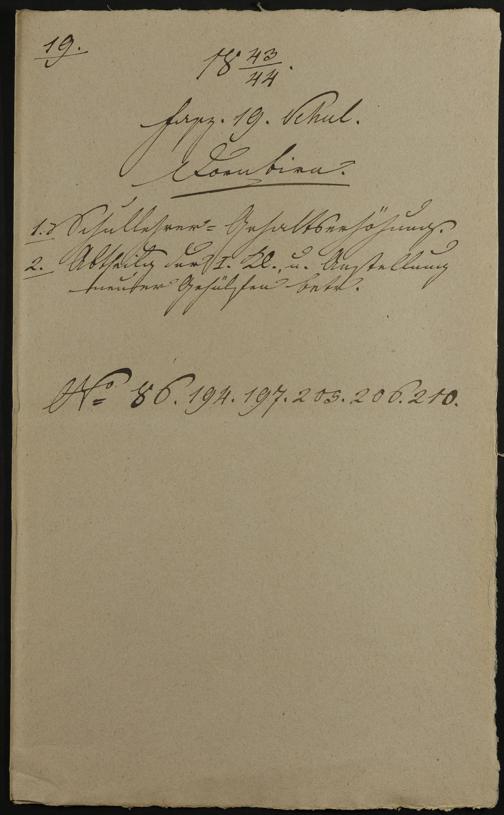 19.
18 43/44.
Fasz. 19. Schul.
Dornbirn.
1.) Schullehrer= Gehaltserhöhung.
2. Abtheilg der I. Kl., u. Anstellung
neuer Gehülfen betr.
No 86. 194. 197. 203. 206. 210.